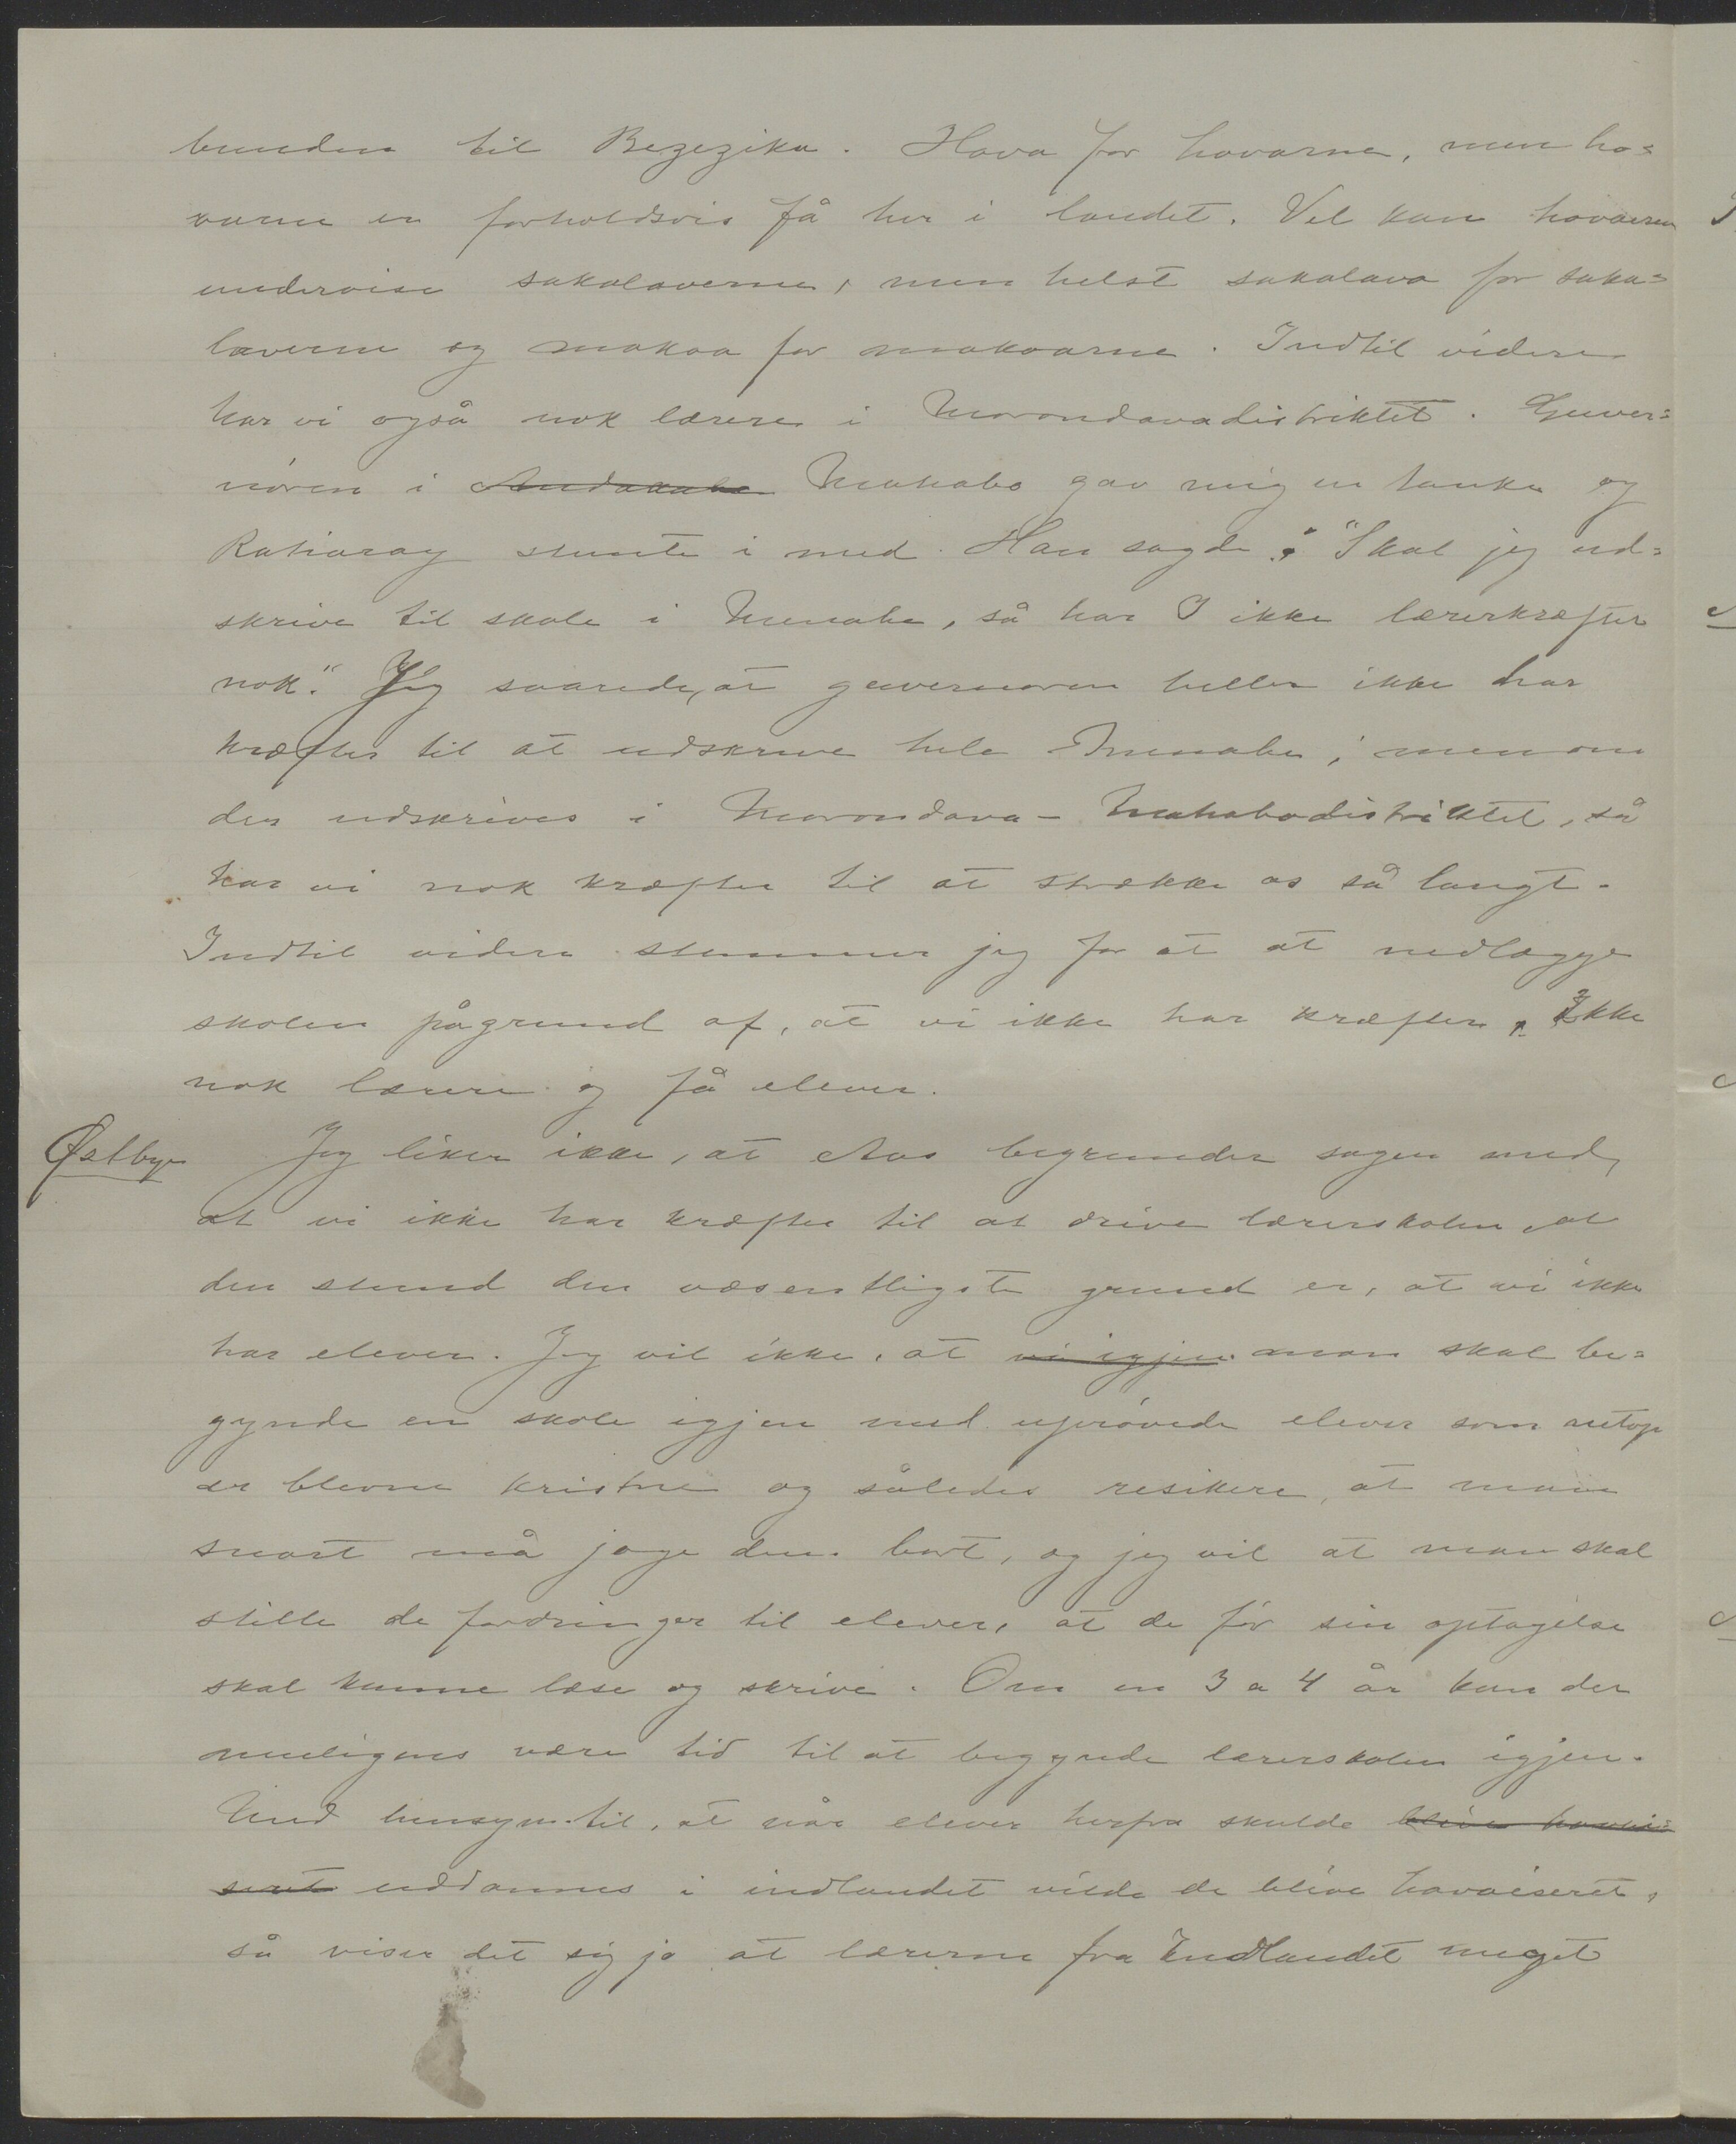 bunden til Bezezika. Hova for hovarne, men ho=
varne er forholdsvis få her i landet. Vel kan hovaerne
undervise sakalaverne, men helst sakalava for saka=
laverne og makoa for makoarne. Indtil videre
har vi også nok lærere i Morondavadistriktet. Guver=
nøren i Andakabe Mahabo gav mig en tanke og
Ratiaray stemte i med. Han sagde: "Skal jeg ud=
skrive til skole i Menabe, så har I ikke lærerkræfter
nok." Jeg svarede, at guvernøren heller ikke har
kræfter til at udskrive hele Menabe; men om
der udskrives i Morondava- Mahabodistriktet, så
har vi nok kræfter til at strække os så langt.
Indtil videre stemmer jeg for at at nedlægge
skolen pågrund af, at vi ikke har kræfter. Ikke
nok lærere og få elever.
Østbye Jeg liker ikke, at Aas begrunder sagen med,
at vi ikke har kræfter til at drive lærerskolen, al
den stund den væsentligste grund er, at vi ikke
har elever. Jeg vil ikke, at vi igjen man skal be=
gynde en skole igjen med uprøvede elever som netop
er blevne kristne og således resikere, at man
snart må jage dem bort, og jeg vil at man skal
stille de fordringer til elever, at de før sin optagelse
skal kunne læse og skrive. Om en 3 a 4 år kan der
muligens være tid til at begynde lærerskolen igjen.
Med hensyn til, at når elever herfra skulde blive hovai=
seret uddannes i indlandet vilde de blive hovaiseret,
så viser det sig jo at lærerne fra Indlandet meget